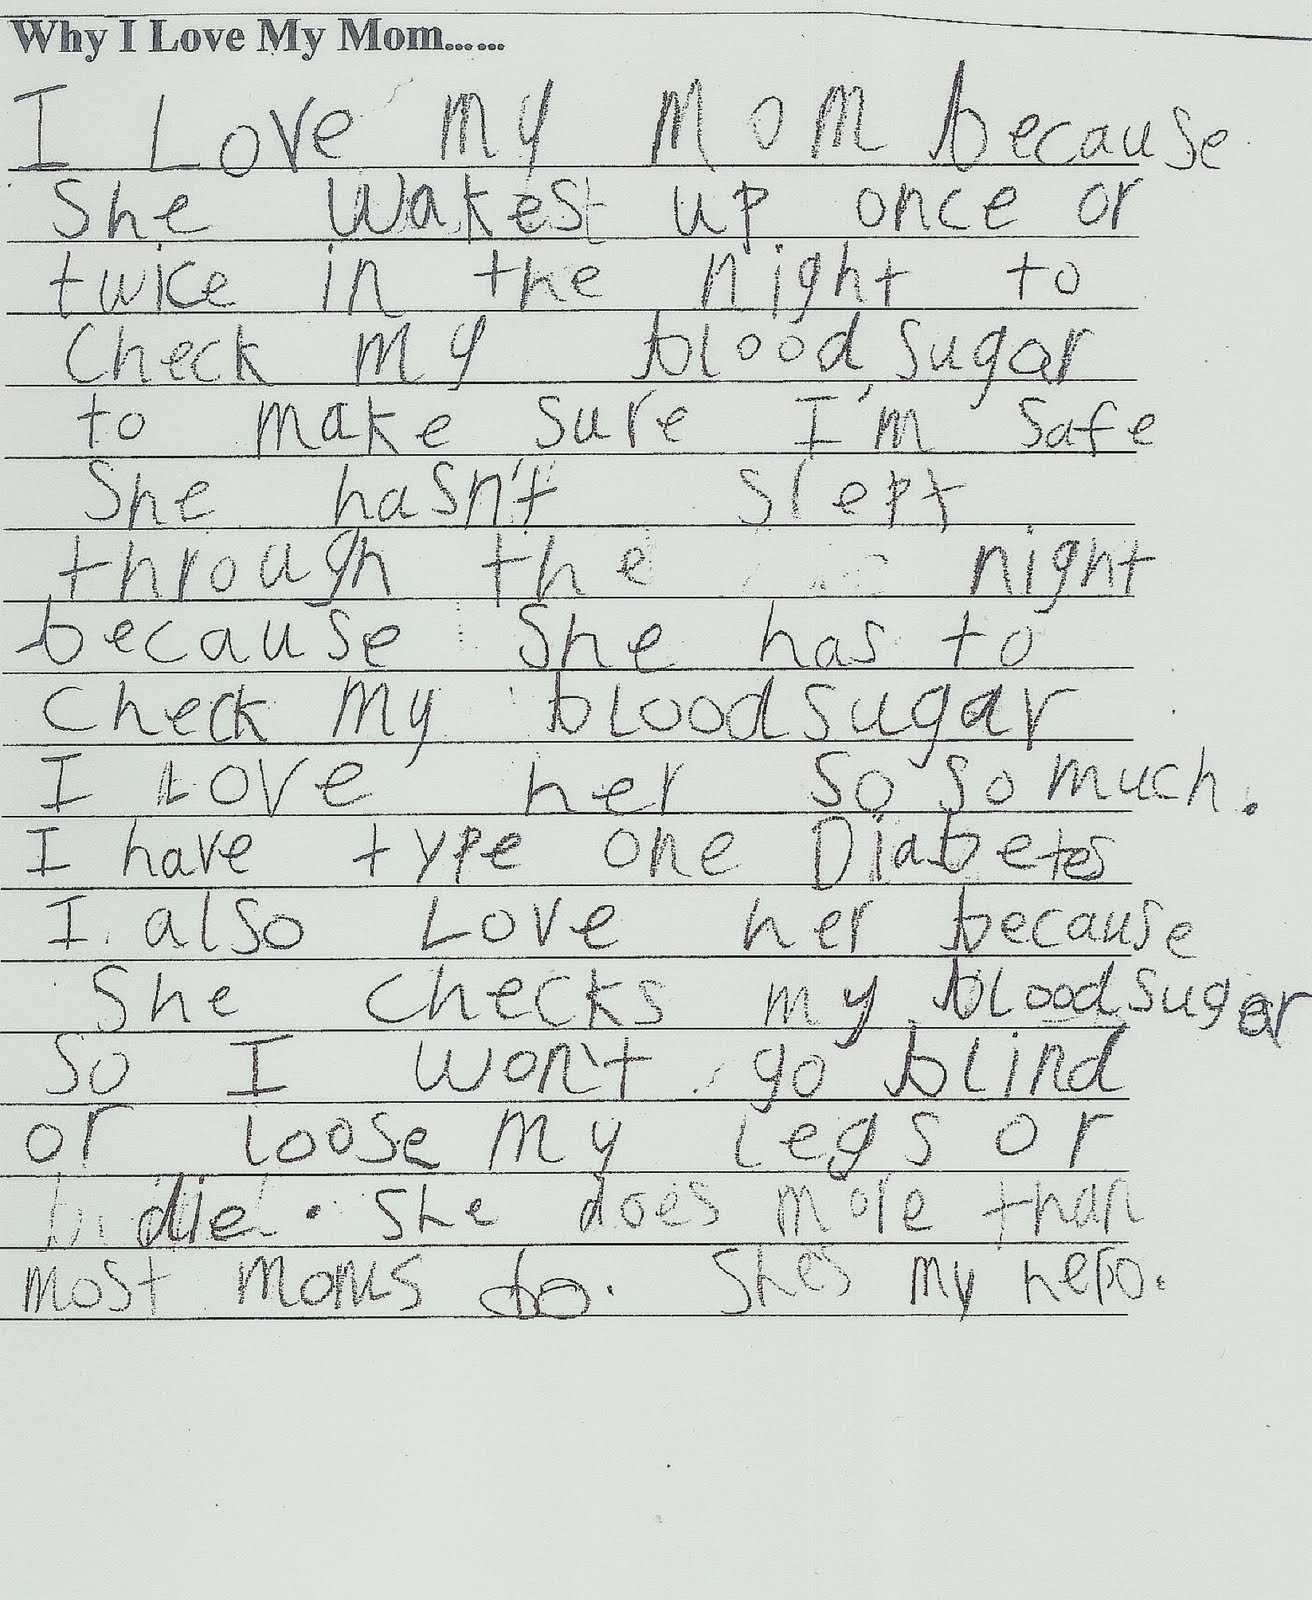 Why I Love My Mom......
I Love my Mom because
She wakest up once or
twice in the night to
Check my blood sugar
to make sure I'm safe
She hasn't slept
through the night
because She has to
check my bloodsugar
I Love her so so much.
I have type one Diabetes
I also Love her because
She checks my bloodsugar
So I won't go blind
or loose my legs or
die. She does more than
most moms do. Shes my hero.